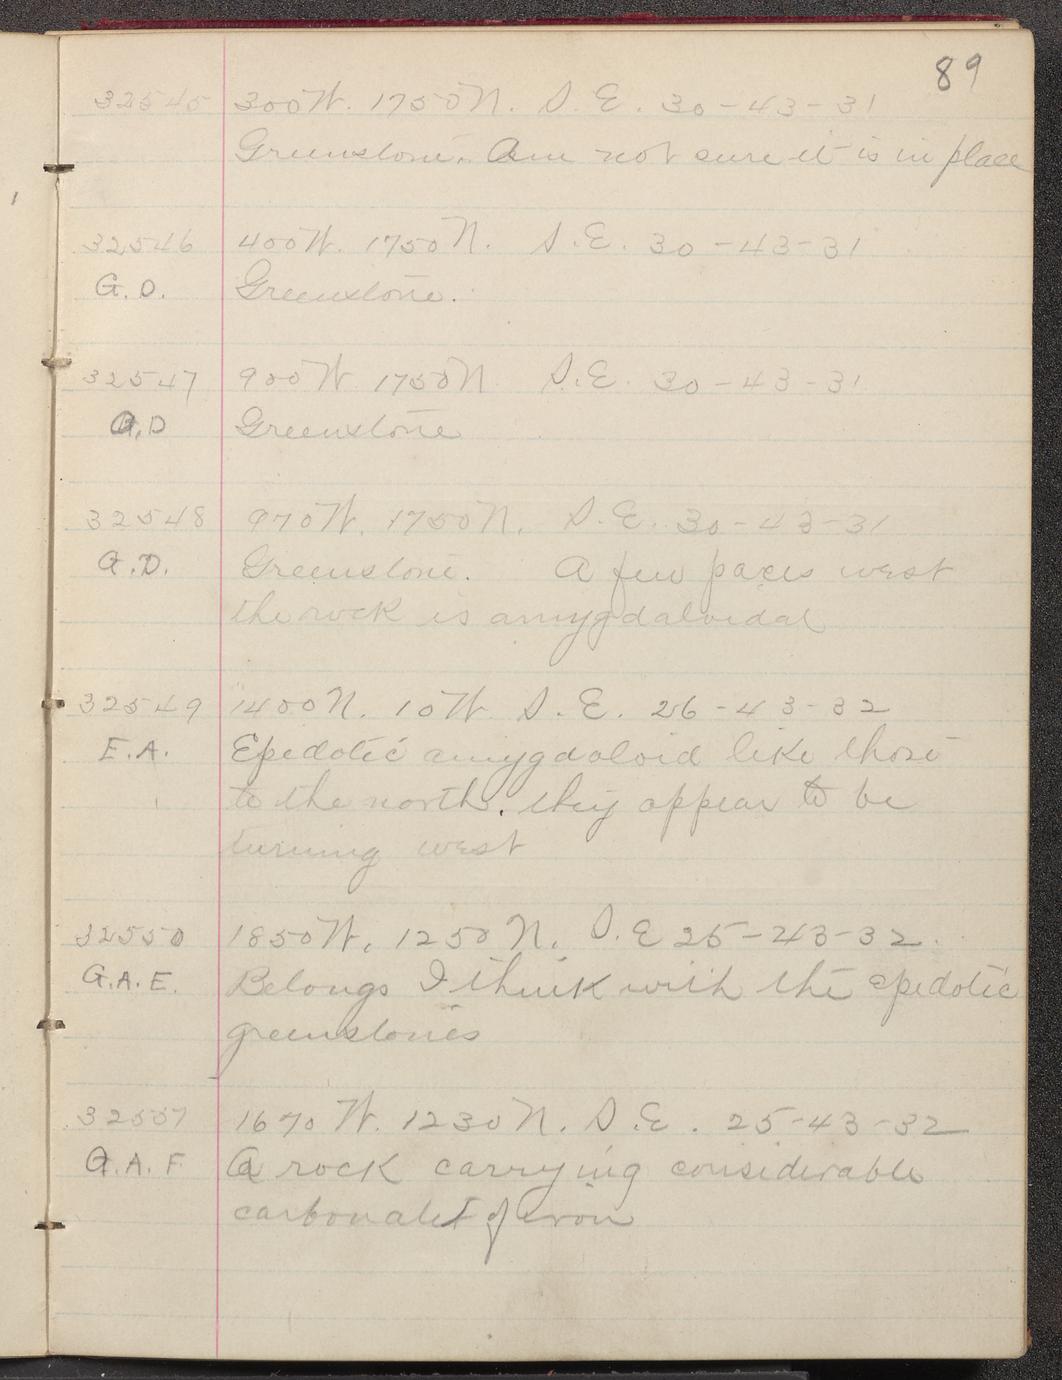 89
32545 300W. 1750N. S.E. 30-43-31
Greenstone. Am not sure it is in place
32546 400W. 1750N. S.E. 30-43-31
G.D. Greenstone.
32547 900W 1750N S.E. 30-43-31
G.D Greenstone
32548 970W. 1750N. S.E. 30-43-31
G.D. Greenstone. A few paces west
the rock is amygdaloidal
32549 1400N. 10W S.E. 26-43-32
E.A. Epidotic amygdaloid like those
to the north. they appear to be
turning west
32550 1850W. 1250N. S.E 25-43-32.
G.A.E. Belongs I think with the epidotic
greenstones
32557 1670 W. 1230N. S.E. 25-43-32
G.A.F A rock carrying considerable
carbonate of iron